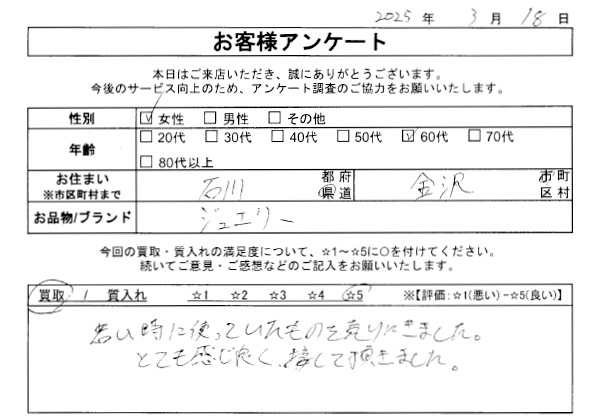 2025 年 3 月 18 日
お客様アンケート
本日はご来店いただき、誠にありがとうございます。
今後のサービス向上のため、アンケート調査のご協力をお願いいたします。
性別 ☑ 女性 □ 男性 □ その他
年齢 □ 20代 □ 30代 □ 40代 □ 50代 ☑ 60代 □ 70代
□ 80代以上
お住まい ※市区町村まで 石川 都 府 県 道 金沢 市 町 区 村
お品物/ブランド ジュエリー
今回の買取・質入れの満足度について、☆1～☆5に○を付けてください。
続いてご意見・ご感想などのご記入をお願いいたします。
買取 / 質入れ ☆1 ☆2 ☆3 ☆4 ☆5 ※【評価：☆1(悪い)－☆5(良い)】
若い時に使っていたものを売りにきました。
とても感じ良く、接して頂きました。